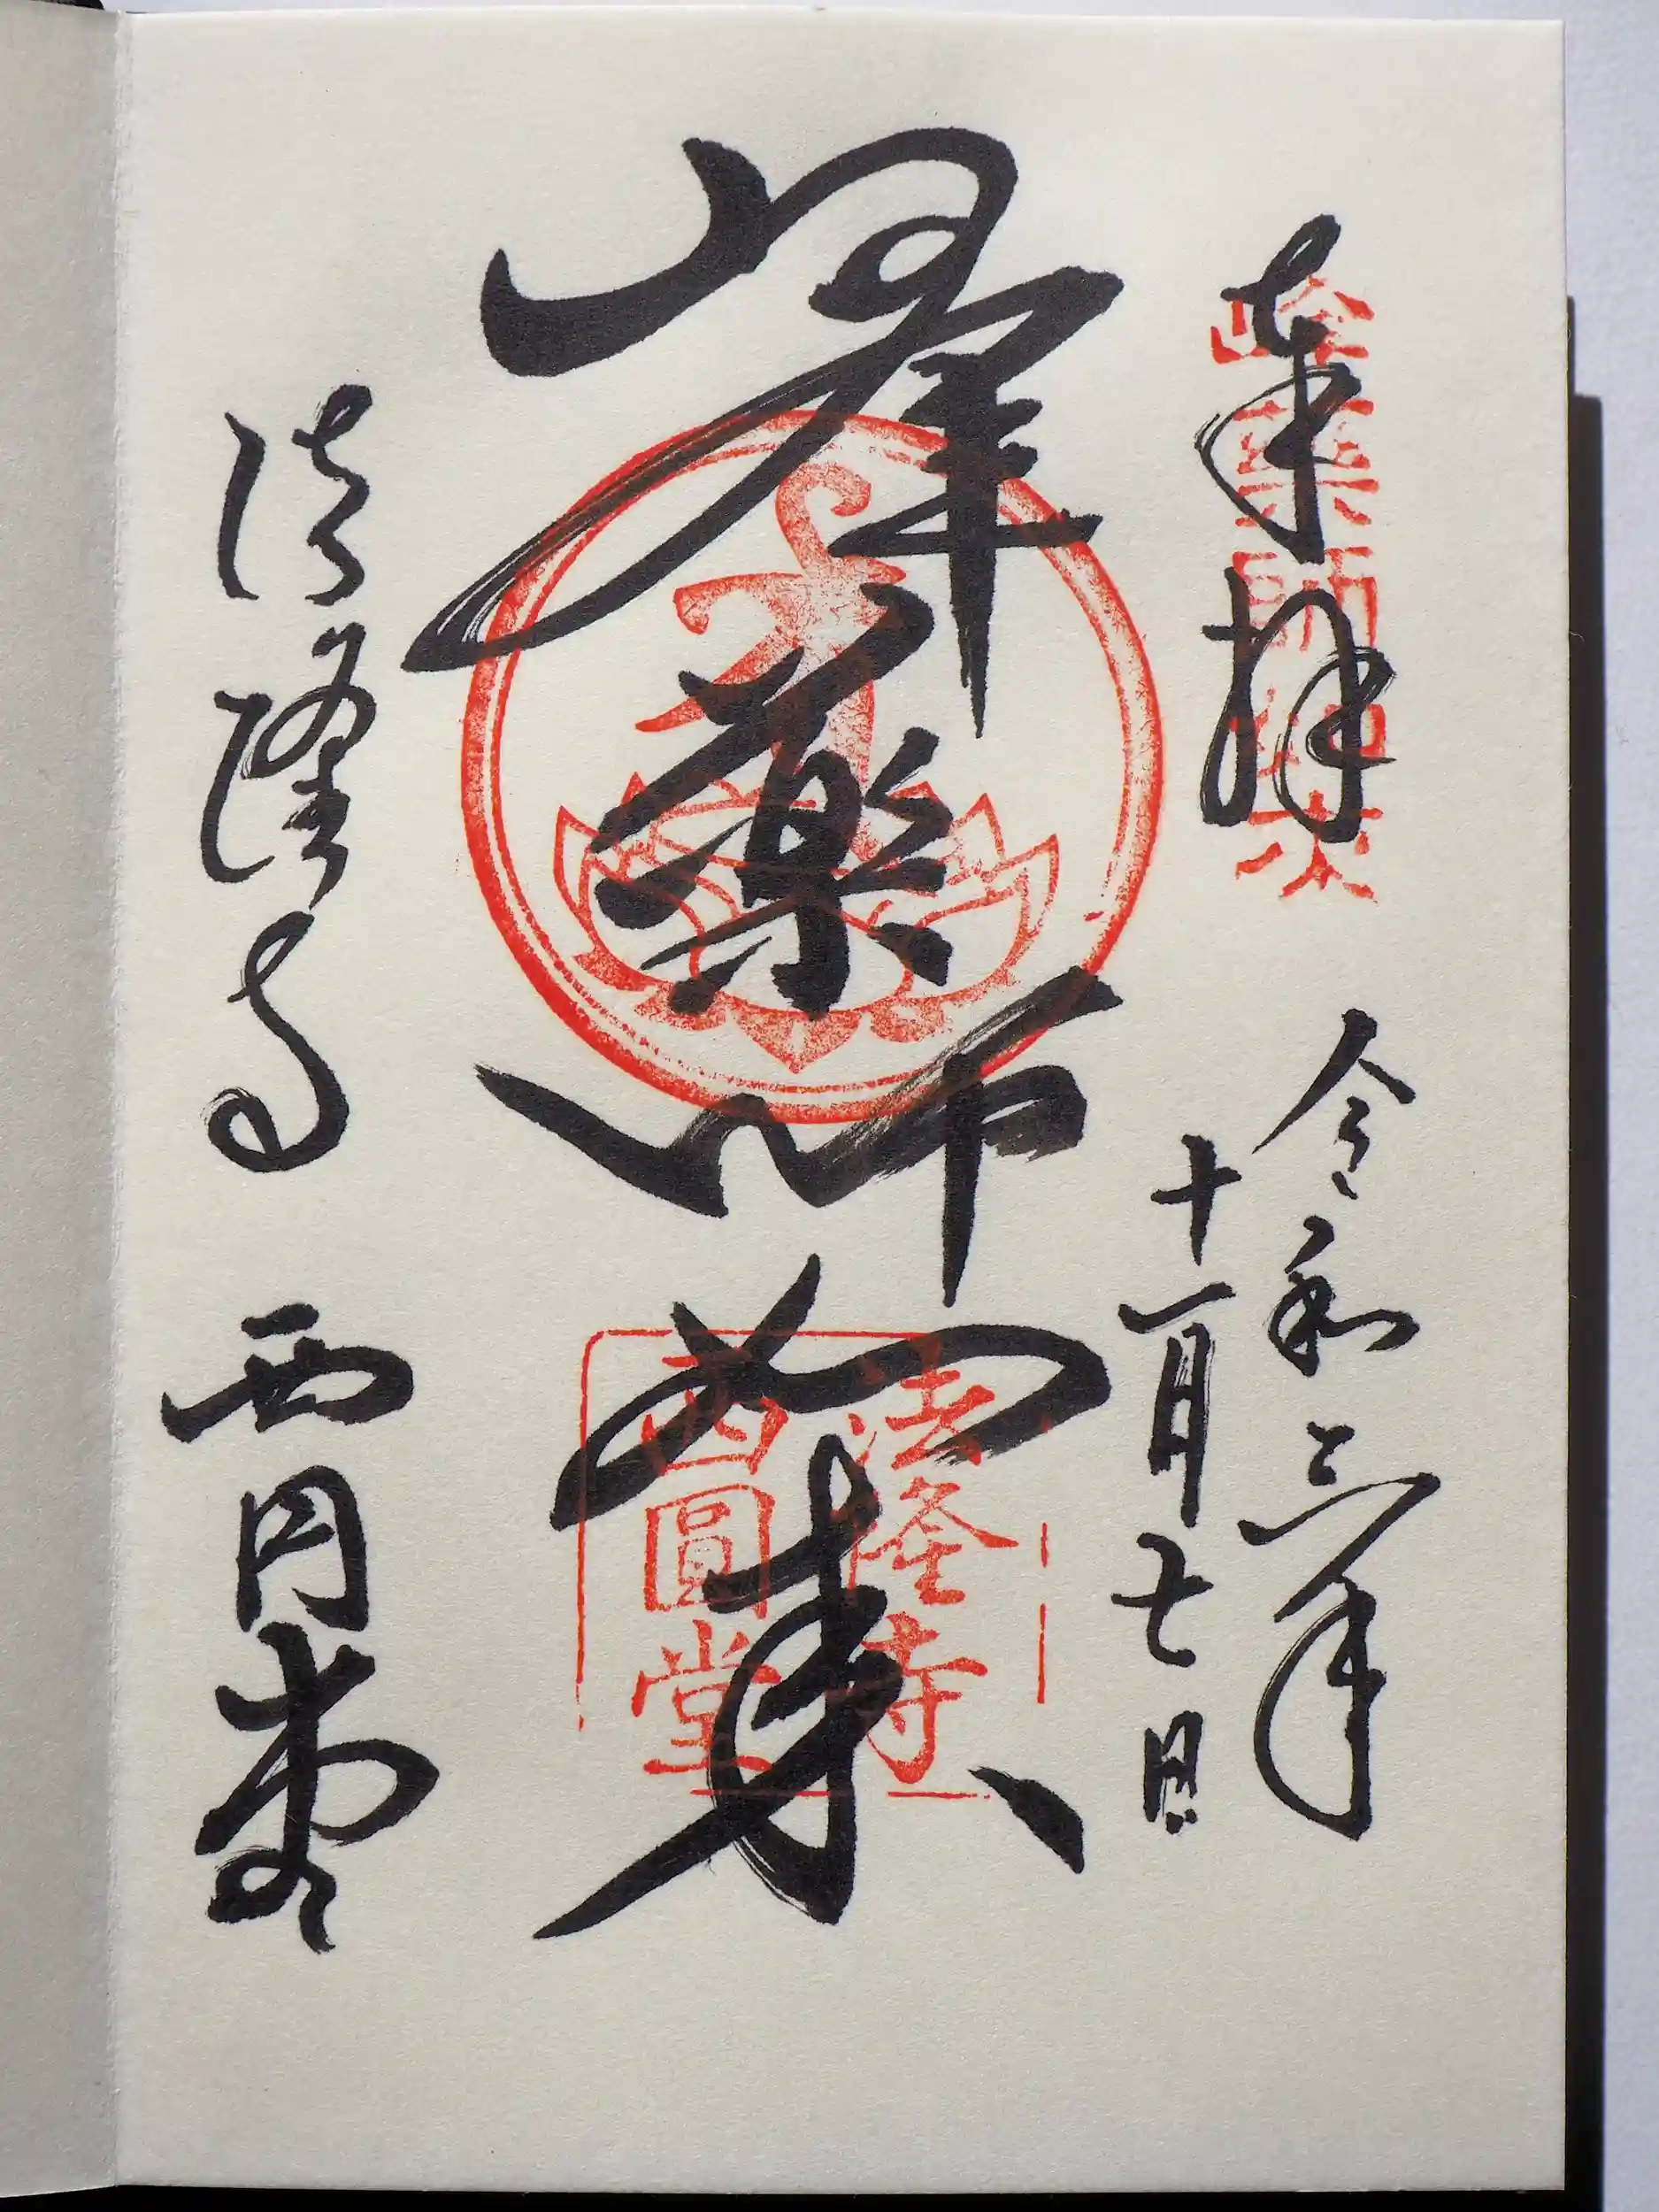 奉拝
令和三年
十一月七日
峰薬師如来
法隆寺 西円堂
峰薬師如来
法隆寺
西圓堂